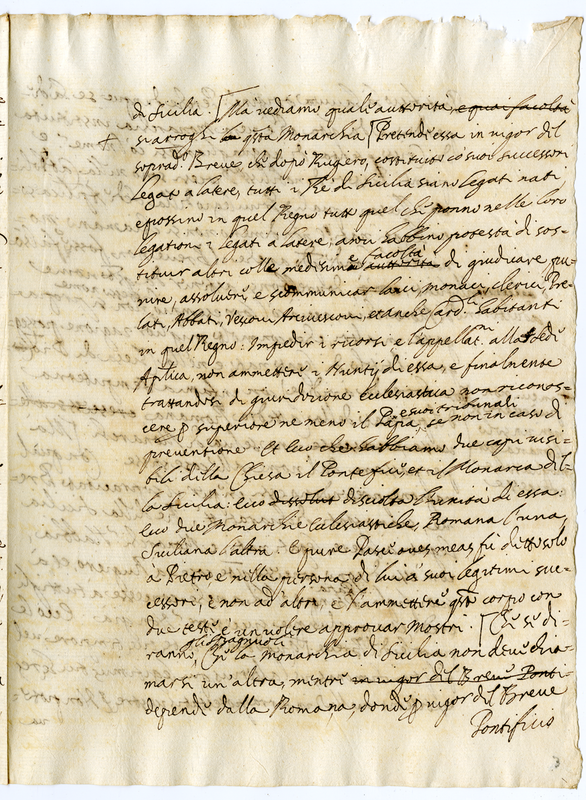 di Sicilia. [Ma vediamo quale autorità, e quai facoltà
si arroghi la qsta Monarchia [Pretende essa in vigor del
soprad.o Breve che dopo Rugero, costituito co' suoi successori
Legati a latere, tutti i Re di Sicilia siano Legati nati
e possino in quel Regno tutto quel che ponno nelle loro
legationi i Legati a latere, anzi habbino potestà di sos-
tituir altri colle medesime autorità e facoltà di giudicare, pu-
nire, assolvere, e scommunicar laici, monaci, clerici, Pre-
lati, Abbati, Vescovi Arcivescovi, et anche Card.li habitanti
in quel Regno. Impedir i ricorsi e l'appellat.ni alla Sede
Aplica, non ammettere i Nuntij di essa, e finalmente
trattandosi di giurisdizione Ecclesiastica non riconos-
cere p superiore ne meno il Papa, e suoi tribunali se non in caso di
preventione. Et ecco che habbiamo due capi visi-
bili della Chiesa il Pontefice, et il Monarca del-
la Sicilia: ecco dissolut disciolta l'unità di essa:
ecco due Monarchie Ecclesiastiche, Romana l'una,
Siciliana l'altra. E pure Pasce oves meas fù detto solo
à Pietro e nella persona di lui a' suoi legitimi suc-
cessori, e non ad altri, e l'ammettere qsto corpo con
due teste è un volere approvar Mostri. [Che se di-
ranno, che la Monarchia di Sicilia non deve chia-
marsi un'altra, mentre in vigor del Breve Ponti-
depende dalla Romana, donde p vigor del Breve
Pontificio